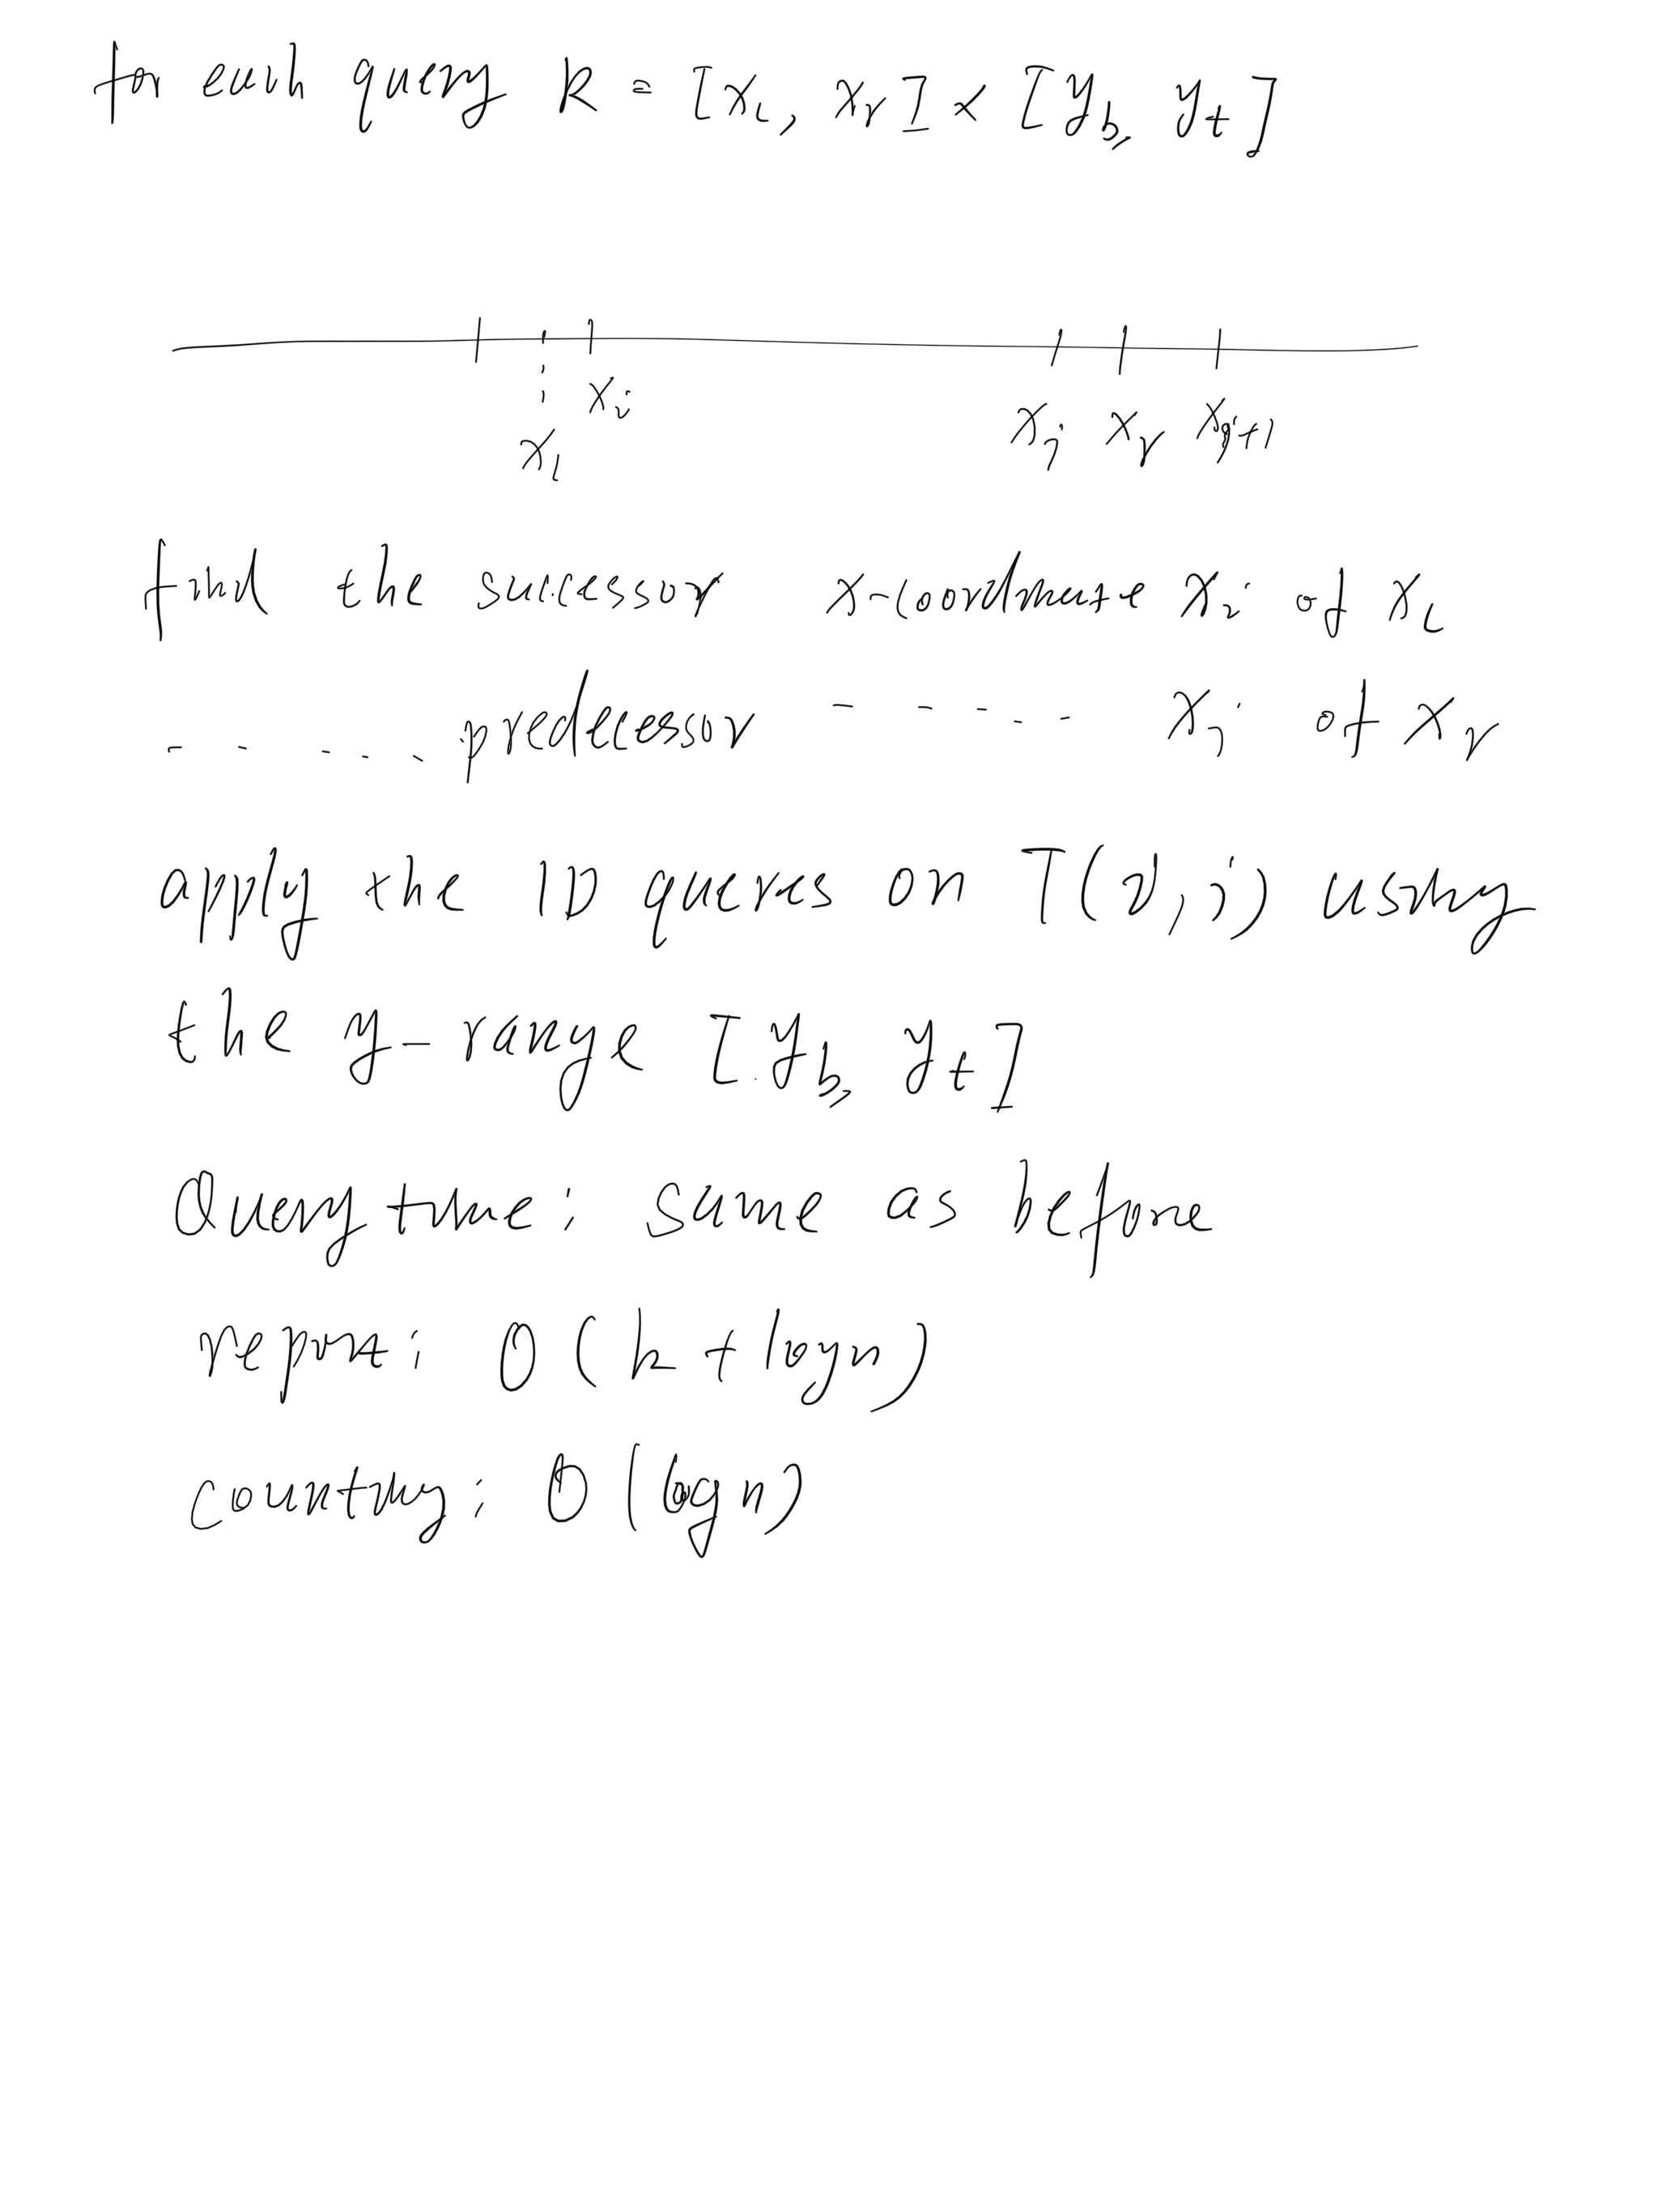 for each query R = [x_l, x_r] × [y_b, y_t]
x_i
x_l
x_j x_r x_j+1
find the successor x-coordinate x_i of x_l
- - - - - predecessor - - - - - x_j of x_r
apply the 1D queries on T(i, j) using
the y-range [y_b, y_t]
Query time: same as before
report: O(k + log n)
counting: O(log n)